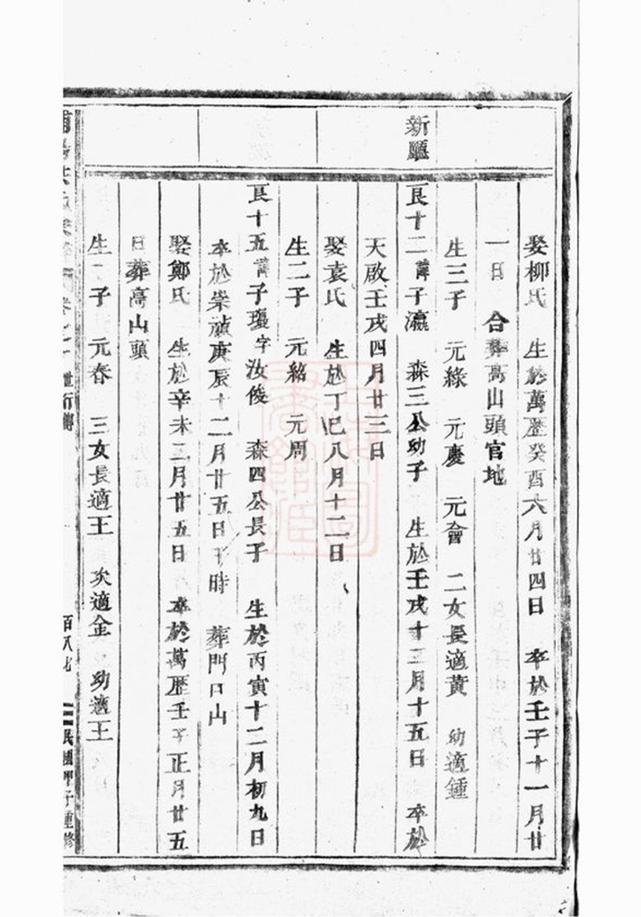 娶柳氏 生於萬歷癸酉六月廿四日 卒於壬子十一月廿
一日 合葬高山頭官地
生三子 元綠 元慶 元會 二女長適黃 幼適鍾
新廳
良十二諱子瀛 森三公幼子 生於壬戌十二月十五日 卒於
天啟壬戌四月廿三日
娶袁氏 生於丁巳八月十二日
生二子 元銘 元周
良十五諱子瓊字汝俊 森四公長子 生於丙寅十二月初九日
卒於崇禎庚辰十二月廿五日 時 葬門口山
娶鄭氏 生於辛未二月廿五日 卒於萬歷壬子正月廿五
日葬高山頭
生 子 元春 三女長適王 次適金 幼適王
世行傳
百八七
民國甲子重修